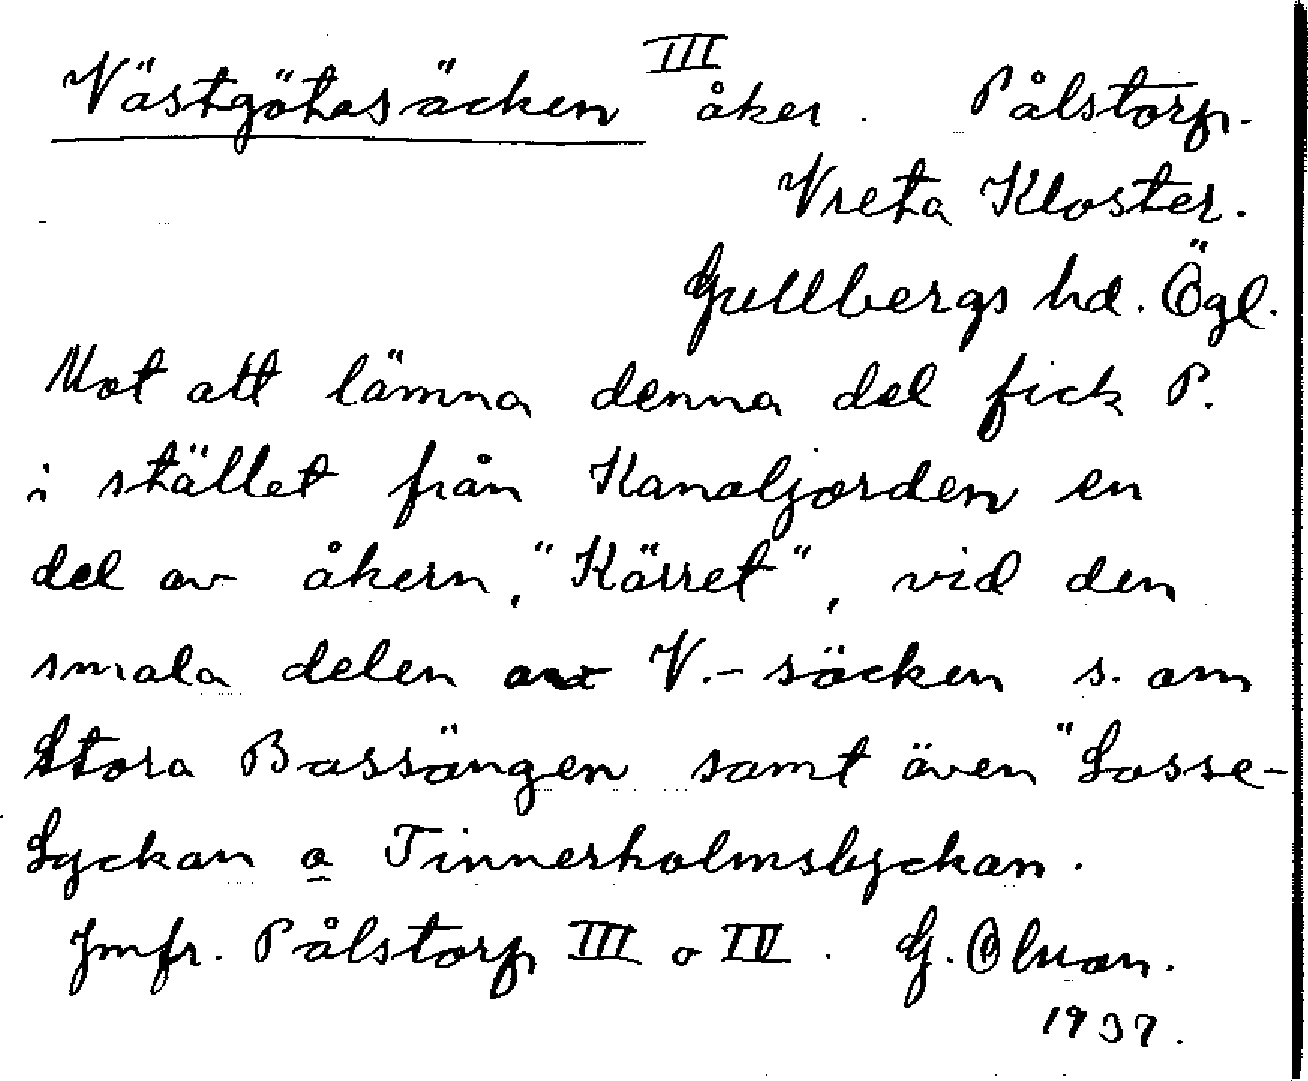 Västgötasäcken III åker. Pålstorp.
Vreta Kloster.
Gullbergs hd. Ögl.
Mot att lämna denna del fick P.
i stället från Kanaljorden en
del av åkern, "Kärret", vid den
smala delen av V.-säcken s. om
Stora Bassängen samt även "Lasse-
Lyckan o Tinnerholmslyckan.
Jmfr. Pålstorp III o IV. G. Olson.
1937.